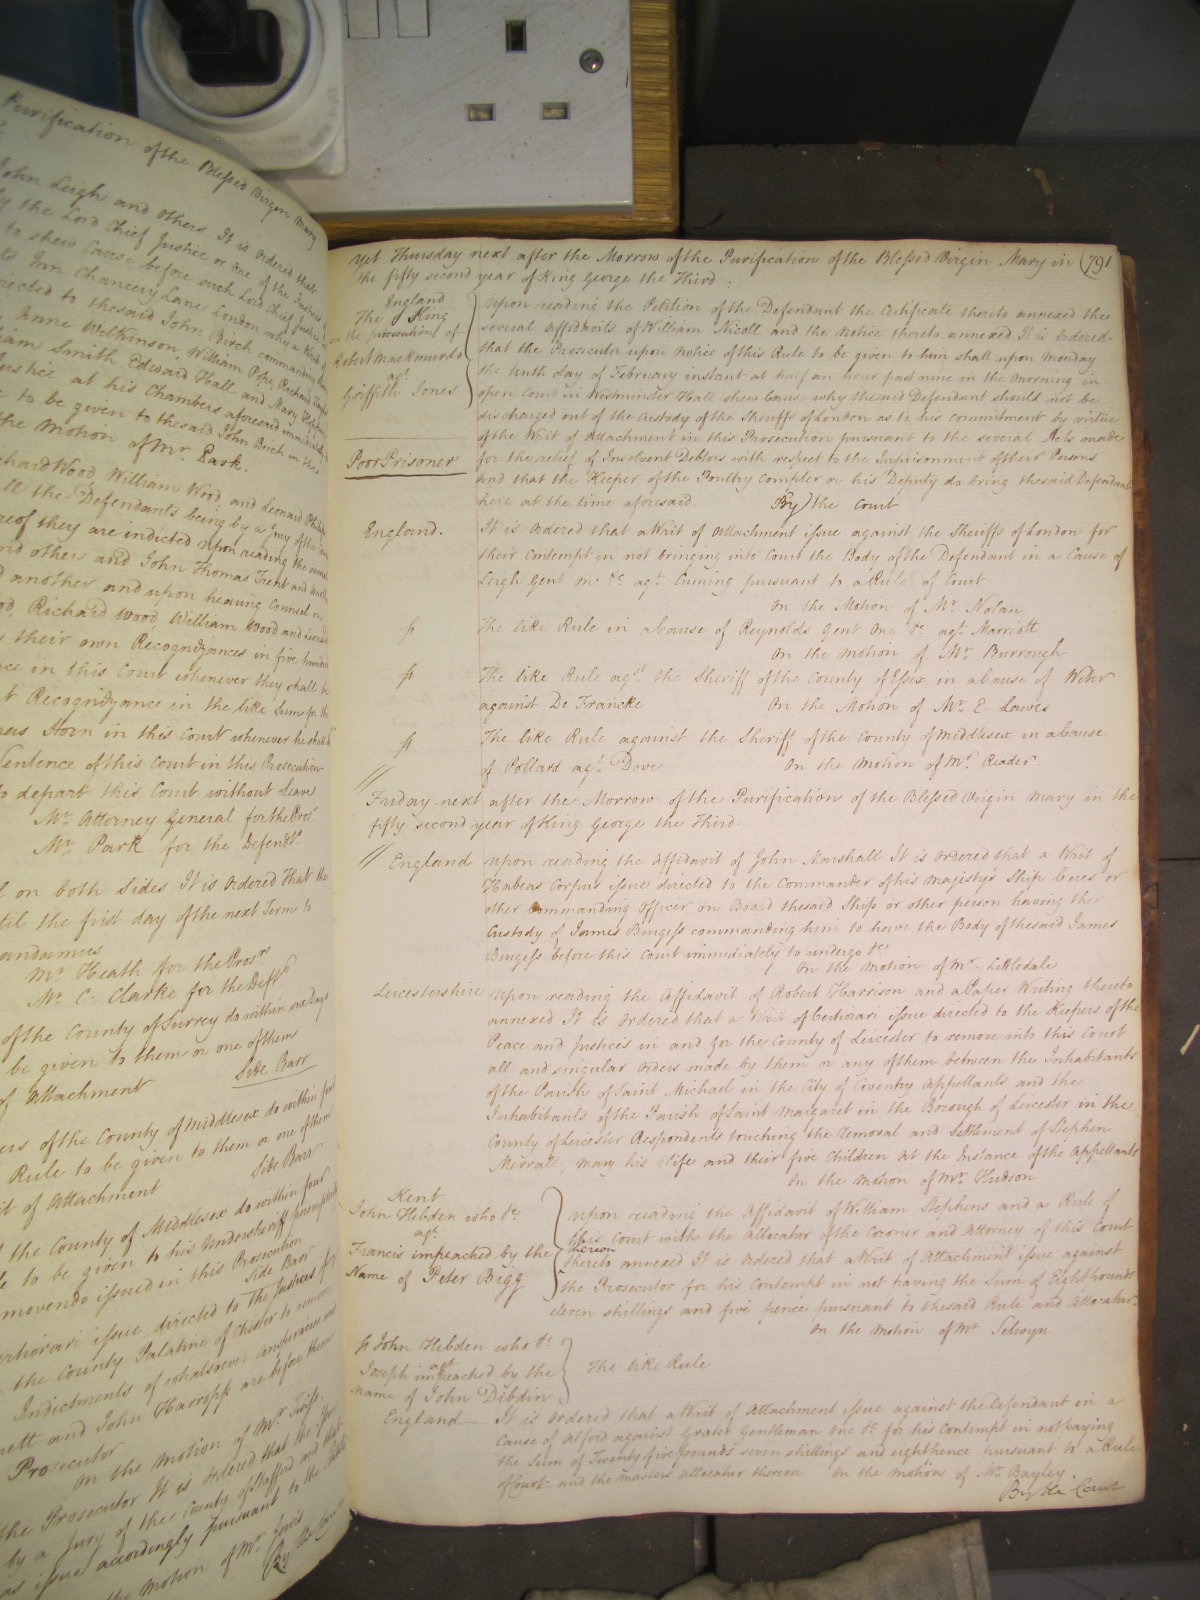 Purification of the Blessed Virgin Mary
John Leigh and others It is Ordered that
by the Lord Chief Justice or one of the Justices
to shew Cause before such Lord Chief Justice
Inn Chancery Lane London why a Writ of
directed to the said John Birch commanding
Anne Wilkinson, William Pope, Richard
William Smith Edward Hall and Mary
Justice at his Chambers aforesaid immediately
to be given to the said John Birch in the
the Motion of Mr. Park.
Richard Wood William Wood and Leonard
all the Defendants being by a Jury of the
whereof they are indicted upon reading the
and others and John Thomas Trent and
another and upon hearing Counsel on
Richard Wood, William Wood and Leonard
their own Recognizances in five hundred
in this Court whenever they shall be
Recognizance in the like Sum for the
in this Court whenever he shall be
Sentence of this Court in this Prosecution
to depart this Court without Leave
Mr. Attorney General for the Pros.r
Mr. Park for the Defend.ts
on both Sides It is Ordered that the
until the first day of the next Term to
Mandamus
Mr. Heath for the Pros.rs
Mr. C. Clarke for the Deft.
of the County of Surrey do within six Days
be given to them or one of them
of Attachment Side Barr
of the County of Middlesex do within four
Rule to be given to them or one of them
Writ of Attachment Side Barr
the County of Middlesex do within four
to be given to his Undersheriff peremptorily
issued in this Prosecution
Side Barr
Certiorari issue directed to the Justices of
the County Palatine of Chester to remove
Indictments of whatsoever
and John Harropp are before them
Prosecutor
On the Motion of Mr. Twiss.
the Prosecutor It is Ordered that the Issue
by a Jury of the County of Stafford and that
issue accordingly pursuant to the
the Motion of Mr. Jervis
By the Court
Yet Thursday next after the Morrow of the Purification of the Blessed Virgin Mary in 791
the fifty second year of King George the Third.
England
The King
on the prosecution of
Robert Mackmurdo
agt.
Griffith Jones
Poor Prisoner
Upon reading the Petition of the Defendant the Certificate thereto annexed the
several Affidavits of William Nicoll and the Notice thereto annexed It is Ordered
that the Prosecutor upon Notice of this Rule to be given to him shall upon Monday
the tenth day of February instant at half an hour past nine in the Morning in
open Court in Westminster Hall shew Cause why the said Defendant should not be
discharged out of the Custody of the Sheriffs of London as to his commitment by virtue
of the Writ of Attachment in this Prosecution pursuant to the several Acts made
for the relief of Insolvent Debtors with respect to the Imprisonment of their Persons
and that the Keeper of the Poultry Compter or his Deputy do bring the said Defendant
here at the time aforesaid. By the Court
England. It is Ordered that a Writ of Attachment issue against the Sheriffs of London for
their Contempt in not bringing into Court the Body of the Defendant in a Cause of
Leigh Gent one &c. agt. Cuming pursuant to a Rule of Court
On the Motion of Mr. Nolan
The like Rule in a Cause of Reynolds Gent One &c. agt. Marriott
On the Motion of Mr. Burrough
The like Rule agst. the Sheriff of the County of Essex in a Cause of
against De Francke On the Motion of Mr. E. Lawes
The like Rule against the Sheriff of the County of Middlesex in a Cause
of Pollard agt. Dove On the Motion of Mr. Reader.
Friday next after the Morrow of the Purification of the Blessed Virgin Mary in the
fifty second year of King George the Third.
England Upon reading the Affidavit of John Marshall It is Ordered that a Writ of
Habeas Corpus issue directed to the Commander of his Majesty's Ship Ceres or
other Commanding Officer on Board the said Ship or other person having the
Custody of James Burgess commanding him to have the Body of the said James
Burgess before this Court immediately to undergo &c.
On the Motion of Mr. Littledale
Leicestershire Upon reading the Affidavit of Robert Harrison and a Paper Writing thereto
annexed It is Ordered that a Writ of Certiorari issue directed to the Keepers of the
Peace and Justices in and for the County of Leicester to remove into this Court
all and singular Orders made by them or any of them between the Inhabitants
of the Parish of Saint Michael in the City of Coventry Appellants and the
Inhabitants of the Parish of Saint Margaret in the Borough of Leicester in the
County of Leicester Respondents touching the Removal and Settlement of Stephen
Merrall, Mary his Wife and their five Children At the Instance of the Appellants
On the Motion of Mr. Hudson
Kent
John Hebden who &c.
agt.
Francis impeached by the
Name of Peter Bigg
Upon reading the Affidavit of William Stephens and a Rule of
this Court with the Allocatur of the Coroner and Attorney of this Court
thereon
thereto annexed It is Ordered that a Writ of Attachment issue against
the Prosecutor for his Contempt in not paying the Sum of Eight pounds
eleven shillings and five pence pursuant to the said Rule and Allocatur.
On the Motion of Mr. Selwyn
John Hebden who &c.
agt
Joseph impeached by the
Name of John Dibdin
The like Rule
England It is Ordered that a Writ of Attachment issue against the Defendant in a
Cause of Alford against Grater Gentleman One &c. for his Contempt in not paying
the Sum of Twenty five pounds seven shillings and eightpence pursuant to a Rule
of Court and the Masters allocatur thereon On the Motion of Mr. Bayley.
By the Court